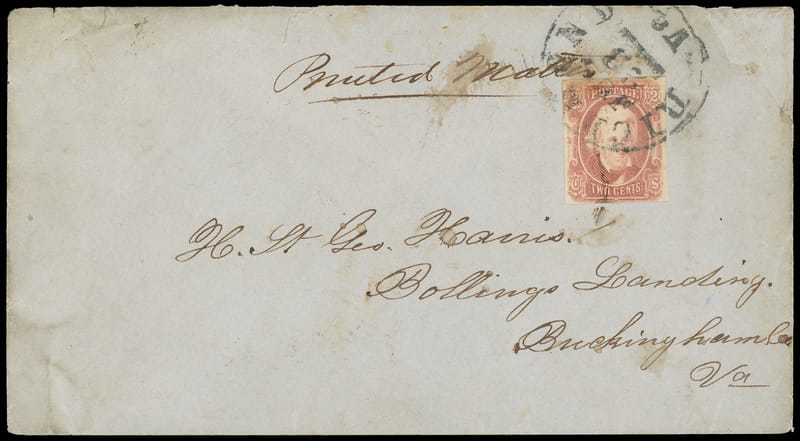 Printed Matter
POSTAGE
2
TWO CENTS
C S
H. St Geo. Harris.
Bollings Landing.
Buckingham Co
Va